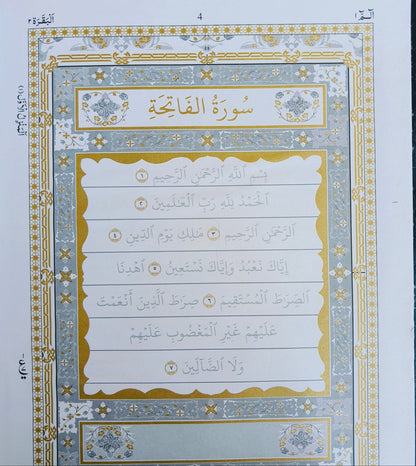 الٓـمّٓ ١
4
البَقَرَة ٢
سُورَةُ الفَاتِحَةِ
بِسْمِ ٱللَّهِ ٱلرَّحْمَٰنِ ٱلرَّحِيمِ ١
ٱلْحَمْدُ لِلَّهِ رَبِّ ٱلْعَٰلَمِينَ ٢
ٱلرَّحْمَٰنِ ٱلرَّحِيمِ ٣ مَٰلِكِ يَوْمِ ٱلدِّينِ ٤
إِيَّاكَ نَعْبُدُ وَإِيَّاكَ نَسْتَعِينُ ٥ ٱهْدِنَا
ٱلصِّرَٰطَ ٱلْمُسْتَقِيمَ ٦ صِرَٰطَ ٱلَّذِينَ أَنْعَمْتَ
عَلَيْهِمْ غَيْرِ ٱلْمَغْضُوبِ عَلَيْهِمْ
وَلَا ٱلضَّآلِّينَ ٧